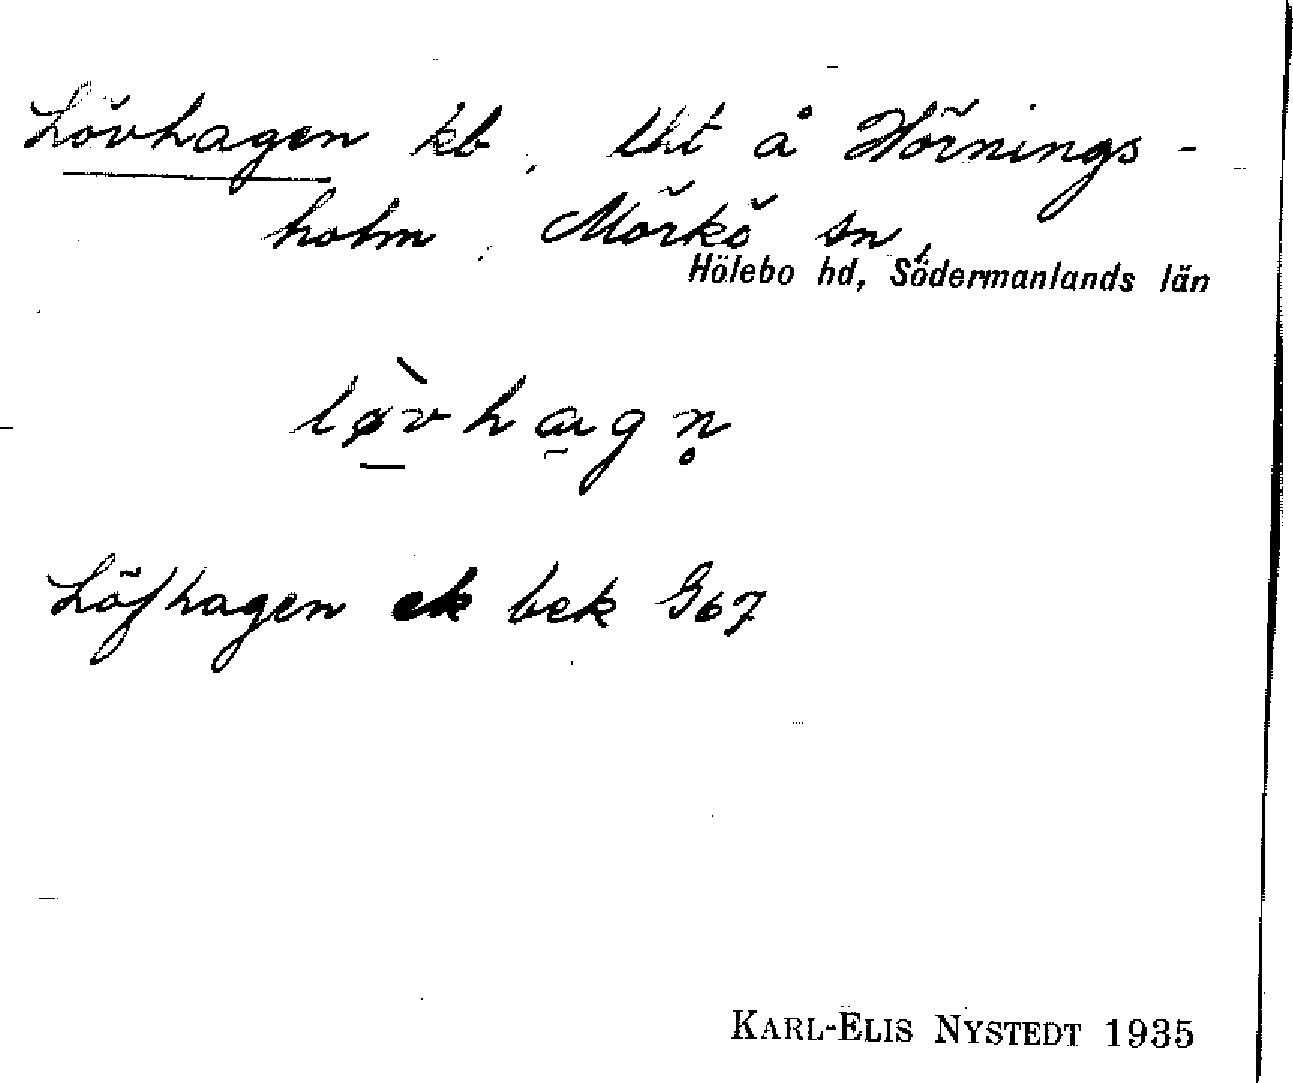 Lövhagen kb, lht å Hörnings-
holm, Mörkö sn,
Hölebo hd, Södermanlands län
lø̀vhagn̥
Löfhagen ek bek G67
KARL-ELIS NYSTEDT 1935